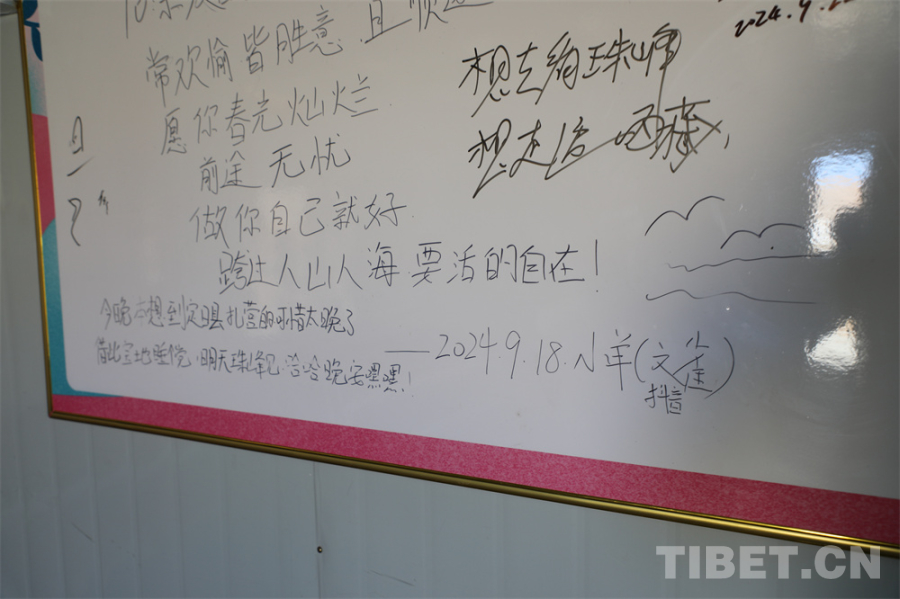 常欢愉皆胜意 且顺遂
愿你春光灿烂
前途无忧
做你自己就好
跨过人山人海 要活的自在！
今晚本想到定日县扎营的可惜太晚了
借此宝地睡觉，明天珠峰见，哈哈晚安嘿嘿！
——2024.9.18.小羊(文
抖音
2024.9.
想去珠峰
想走 西藏，
TIBET.CN